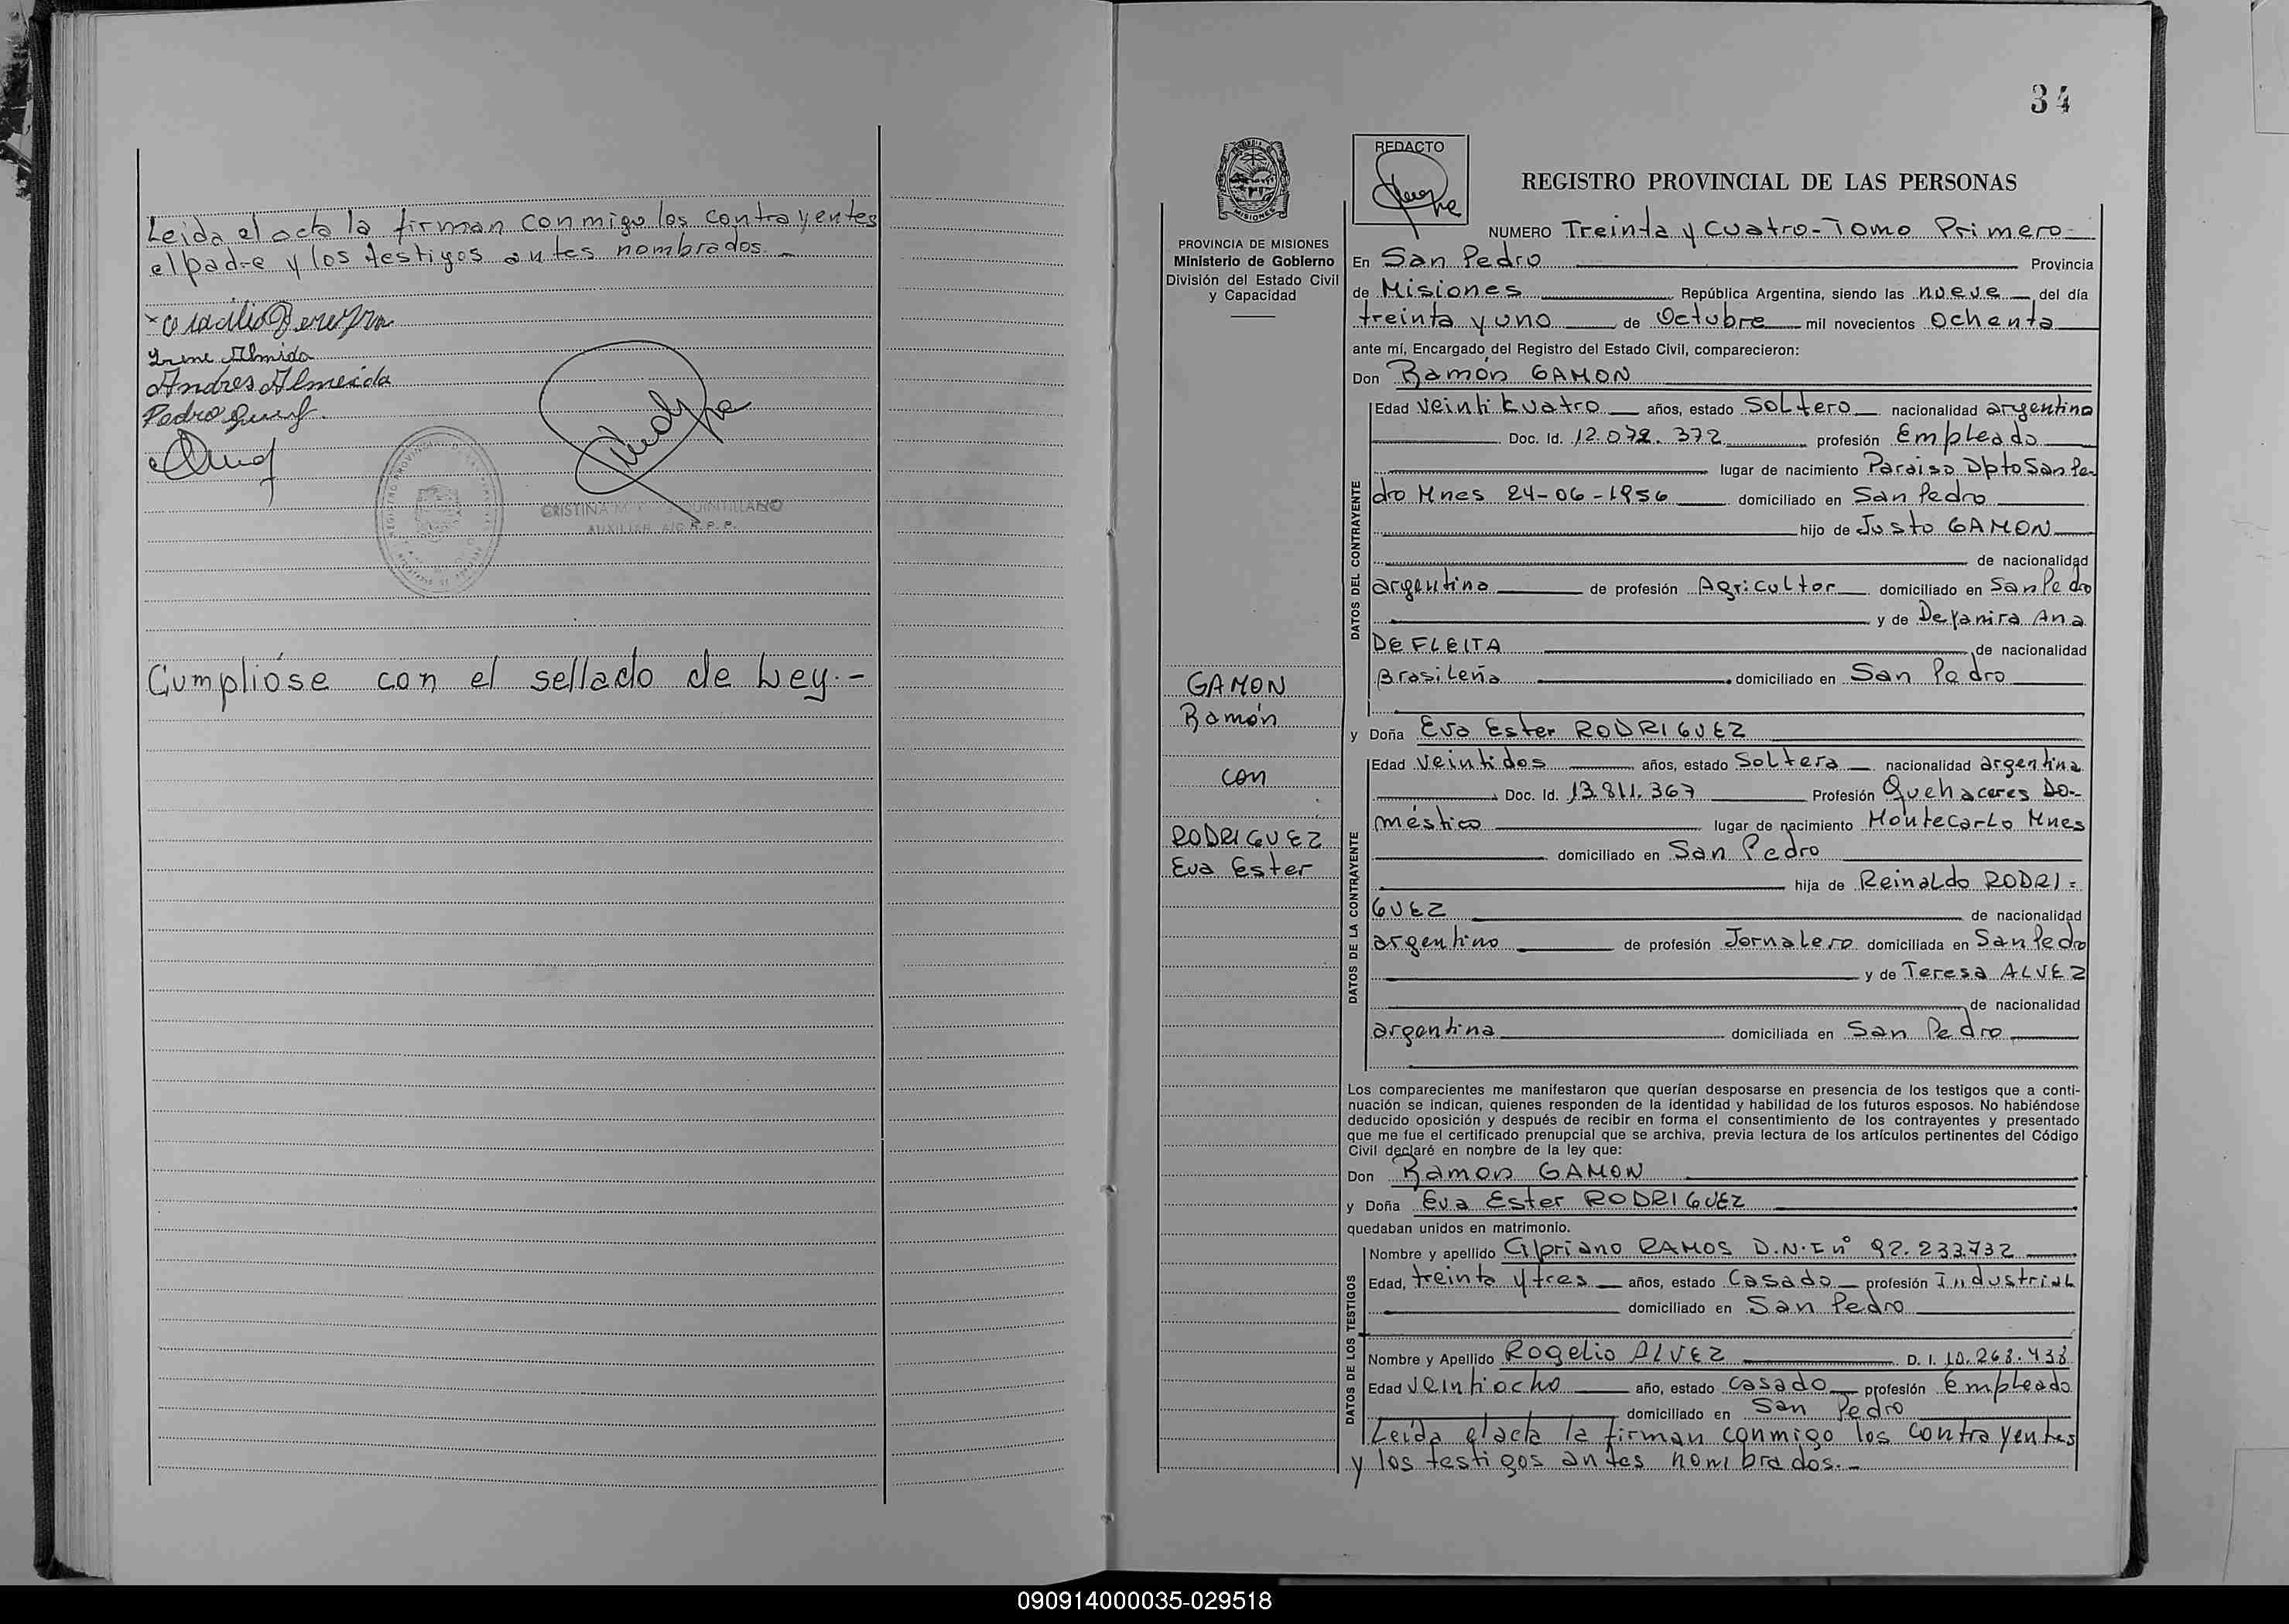 Leida el acta la firman conmigo los contrayentes
el padre y los testigos antes nombrados. -
Irene Almida
Andres Almeida
Pedro
CRISTINA QUINTILLANO
AUXILIAR A/C R. P. P.
Cumplióse con el sellado de Ley. -
34
PROVINCIA DE MISIONES
Ministerio de Gobierno
División del Estado Civil
y Capacidad
GAMON
Ramón
con
RODRIGUEZ
Eva Ester
REDACTO
REGISTRO PROVINCIAL DE LAS PERSONAS
NUMERO Treinta y Cuatro - Tomo Primero -
En San Pedro Provincia
de Misiones República Argentina, siendo las nueve del día
treinta y uno de Octubre mil novecientos Ochenta
ante mí, Encargado del Registro del Estado Civil, comparecieron:
Don Ramón GAMON
DATOS DEL CONTRAYENTE
Edad veinti kuatro años, estado Soltero nacionalidad argentino
Doc. Id. 12.072.372 profesión Empleado
lugar de nacimiento Paraiso Dpto San Pe-
dro Mnes 24-06-1956 domiciliado en San Pedro
hijo de Justo GAMON
de nacionalidad
argentino de profesión Agricultor domiciliado en San Pedro
y de Deyanira Ana
DE FLEITA de nacionalidad
Brasileña domiciliado en San Pedro
y Doña Eva Ester RODRIGUEZ
DATOS DE LA CONTRAYENTE
Edad veintidos años, estado Soltera nacionalidad argentina
Doc. Id. 13.811.367 Profesión Quehaceres Do-
méstico lugar de nacimiento Montecarlo Mnes
domiciliado en San Pedro
hija de Reinaldo RODRI=
GUEZ de nacionalidad
argentino de profesión Jornalero domiciliada en San Pedro
y de Teresa ALVEZ
de nacionalidad
argentina domiciliada en San Pedro
Los comparecientes me manifestaron que querían desposarse en presencia de los testigos que a conti-
nuación se indican, quienes responden de la identidad y habilidad de los futuros esposos. No habiéndose
deducido oposición y después de recibir en forma el consentimiento de los contrayentes y presentado
que me fue el certificado prenupcial que se archiva, previa lectura de los artículos pertinentes del Código
Civil declaré en nombre de la ley que:
Don Ramon GAMON
y Doña Eva Ester RODRIGUEZ
quedaban unidos en matrimonio.
DATOS DE LOS TESTIGOS
Nombre y apellido Cipriano RAMOS D.N.I nº 92.233.732
Edad, treinta y tres años, estado Casado profesión Industrial
domiciliado en San Pedro
Nombre y Apellido Rogelio ALVEZ D. I. 10.268.438
Edad veintiocho año, estado casado profesión Empleado
domiciliado en San Pedro
Leida el acta la firman conmigo los contrayentes
y los testigos antes nombrados. -
090914000035-029518